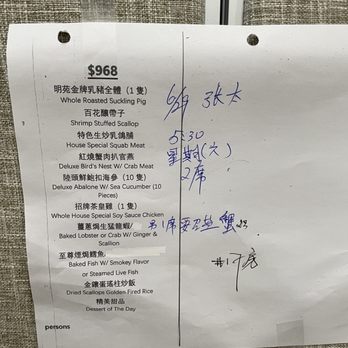 $968
明苑金牌乳豬全體（1 隻）
Whole Roasted Suckling Pig
百花釀帶子
Shrimp Stuffed Scallop
特色生炒乳鴿脯
House Special Squab Meat
紅燒蟹肉扒官燕
Deluxe Bird's Nest W/ Crab Meat
陸頭鮮鮑扣海參（10 隻）
Deluxe Abalone W/ Sea Cucumber (10 Pieces)
招牌茶皇雞（1 隻）
Whole House Special Soy Sauce Chicken
薑蔥焗生猛龍蝦/
Baked Lobster or Crab W/ Ginger & Scallion
至尊煙焗鱈魚
Baked Fish W/ Smokey Flavor
or Steamed Live Fish
金鑲蛋瑤柱炒飯
Dried Scallops Golden Fired Rice
精美甜品
Dessert of The Day
persons
张太
5:30
星期(六)
2席
1席要
蟹
#17房